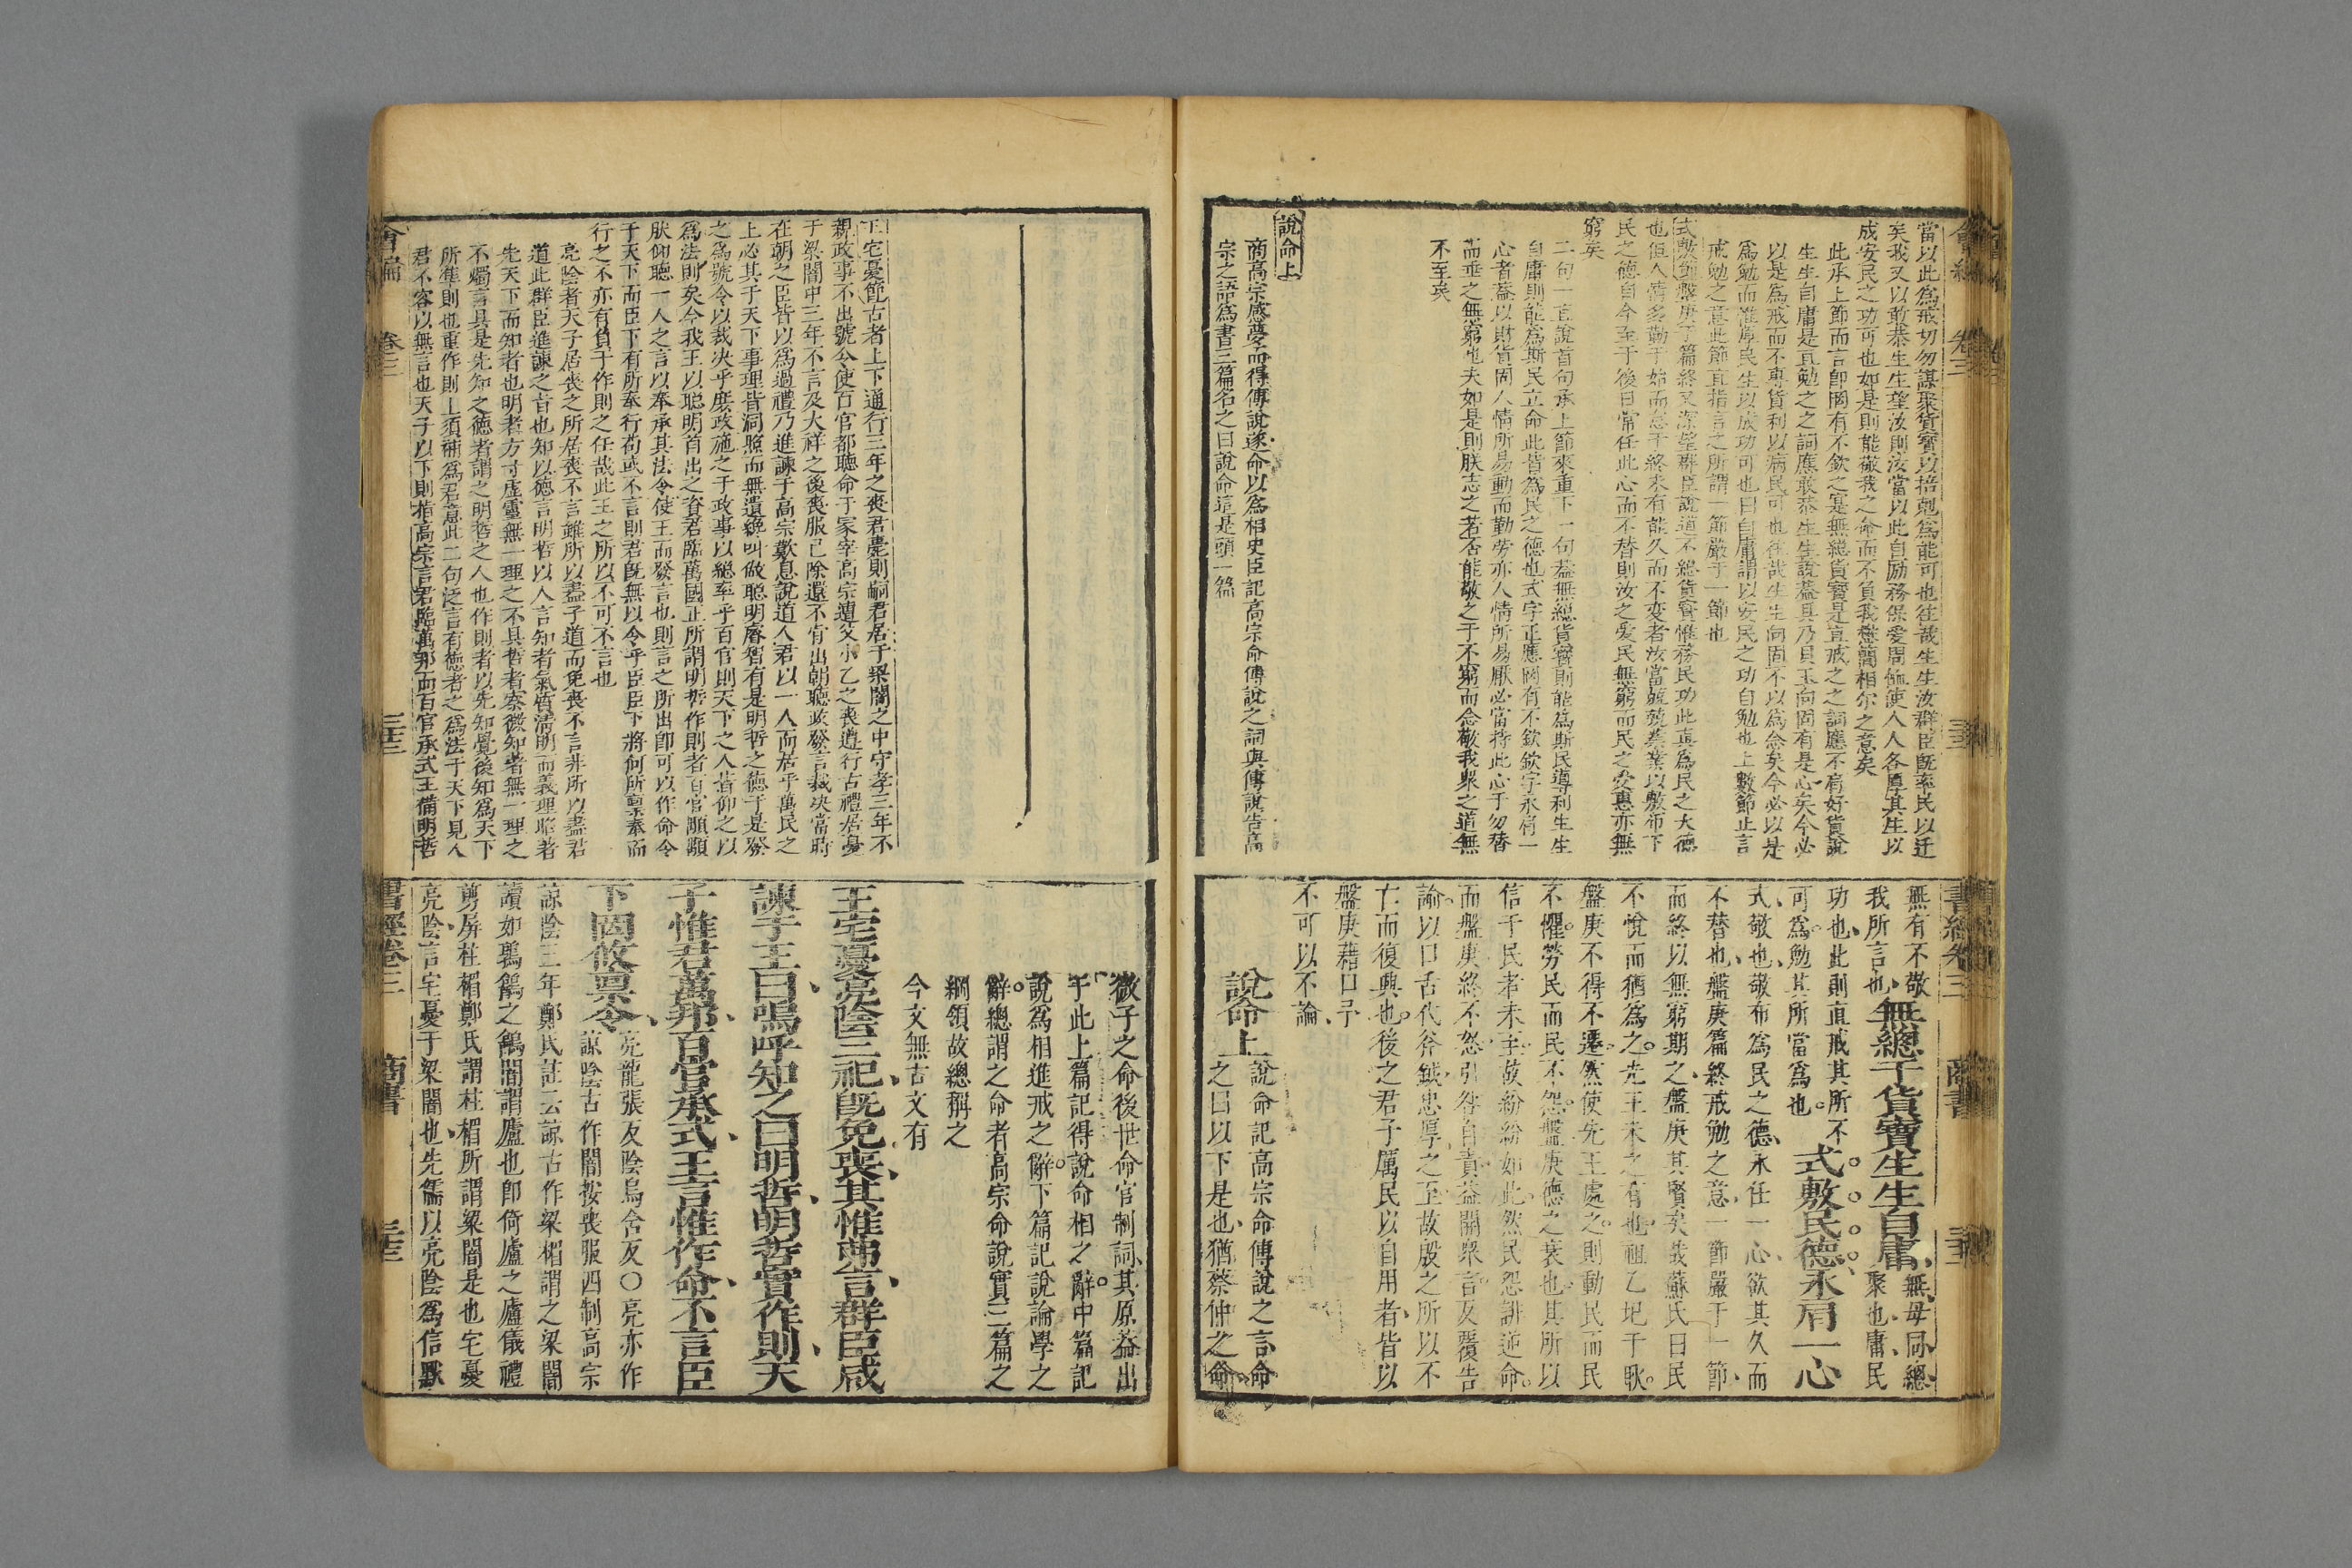 當以此爲戒切勿謀聚貨寶以掊剋爲能可也往哉生生汝群臣既率民以遷
矣我又以敢恭生生望汝則汝當以此自励務保愛周恤使人人各厚其生以
成安民之功可也如是則能敬我之命而不負我懋簡相尔之意矣
此承上節而言卽罔有不欽之寔無總貨寶是直戒之之詞應不肩好貨說
生生自庸是直勉之之詞應敢恭生生說葢具乃貝玉向固有是心矣今必
以是爲戒而不專貨利以病民可也往哉生生向固不以爲念矣今必以是
爲勉而惟厚民生以成功可也曰自庸謂以安民之功自勉也上數節止言
戒勉之意此節直指言之所謂一節嚴于一節也
式敷節盤庚于篇終又深望群臣說道不總貨寶惟務民功此真爲民之大德
也但人情多勤于始而怠于終未有能久而不变者汝當兢兢業業以敷布下
民之德自今至于後日常任此心而不替則汝之爱民無窮而民之受惠亦無
窮矣
二句一直說首句承上節來重下一句葢無總貨寶則能爲斯民導利生生
自庸則能爲斯民立命此皆爲民之德也式字正應罔有不欽欽字永肩一
心者葢以財貨固人情所易動而勤勞亦人情所易厭必當持此心于勿替
而垂之無窮也夫如是則朕志之若否能敬之于不窮而念敬我衆之道無
不至矣
說命上
商高宗感夢而得傅說遂命以爲相史臣記高宗命傅說之詞與傅說告高
宗之語爲書三篇名之曰說命這是頭一篇
無有不敬
我所言也無總于貨寶生生自庸無毋同總
聚也庸民
功也此則直戒其所不
可爲勉其所當爲也式敷民德永肩一心
式敬也敬布爲民之德永任一心欲其久而
不替也盤庚篇終戒勉之意一節嚴于一節
而終以無窮期之盤庚其賢矣哉蘇氏曰民
不悅而猶爲之先王未之有也祖乙圯于耿
盤庚不得不遷然使先王處之則動民而民
不懼勞民而民不怨盤庚德之衰也其所以
信于民者未至故紛紛如此然民怨誹逆命
而盤庚終不怒引咎自責益開衆言反覆告
諭以口舌代斧鉞忠厚之至故殷之所以不
亡而復興也後之君子厲民以自用者皆以
盤庚藉口予
不可以不論
說命上說命記高宗命傅說之言命
之曰以下是也猶蔡仲之命
微子之命後世命官制詞其原葢出
于此上篇記得說命相之辭中篇記
說爲相進戒之辭下篇記說論學之
辭總謂之命者高宗命說實三篇之
綱領故總稱之
今文無古文有
王宅憂亮陰三祀旣免喪其惟弗言群臣咸
諫于王曰嗚呼知之曰明哲明哲實作則天
子惟君萬邦百官承式王言惟作命不言臣
下罔攸禀令亮龍張反陰烏含反〇亮亦作
諒陰古作闇按喪服四制高宗
諒陰三年鄭氏註云諒古作梁楣謂之梁闇
讀如鶉鵪之鵪闇謂廬也卽倚廬之廬儀禮
剪屏柱楣鄭氏謂柱楣所謂梁闇是也宅憂
亮陰言宅憂于梁闇也先儒以亮陰爲信默
王宅憂節古者上下通行三年之喪君薨則嗣君居于梁闇之中守孝三年不
親政事不出號令使百官都聽命于冢宰高宗遭父小乙之喪遵行古禮居憂
于梁闇中三年不言及大祥之後喪服已除還不肯出朝聽政發言裁决當時
在朝之臣皆以爲過禮乃進諫于高宗歎息說道人君以一人而居乎萬民之
上必其于天下事理皆洞照而無遺纔叫做聡明睿智有是明哲之德于是發
之爲號令以裁决乎庶政施之于政事以總率乎百官則天下之人皆仰之以
爲法則矣今我王以聡明首出之資君臨萬國正所謂明哲作則者百官顒顒
朕仰聽一人之言以奉承其法令使王而發言也則言之所出卽可以作命令
于天下而臣下有所奉行苟或不言則君旣無以令乎臣臣下將何所禀奉而
行之不亦有負于作則之任哉此王之所以不可不言也
亮陰者天子居喪之所居喪不言雖所以盡子道而免喪不言非所以盡君
道此群臣進諫之旨也知以德言明哲以人言知者氣質清明而義理昭著
先天下而知者也明者方寸虛靈無一理之不具哲者察微知著無一理之
不燭言具是先知之德者謂之明哲之人也作則者以先知覺後知爲天下
所凖則也重作則上須補爲君意此二句泛言有德者之爲法于天下見人
君不容以無言也天子以下則指高宗言君臨萬邦而百官承式王備明哲
會編 卷三 三十三
書經卷三 商書 三十三